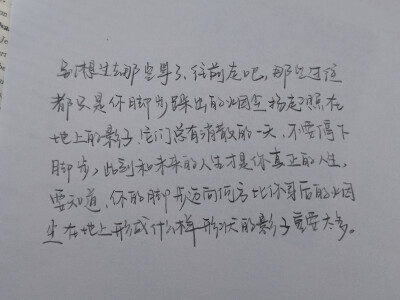 别想过去那些事了，往前走吧，那些过往
都只是你脚步踩出的烟尘扬起照在
地上的影子，它们总有消散的一天，不要停下
脚步，此刻和未来的人生才是你真正的人生，
要知道，你的脚步迈向何方比你身后的烟
尘在地上形成什么样形状的影子重要太多。